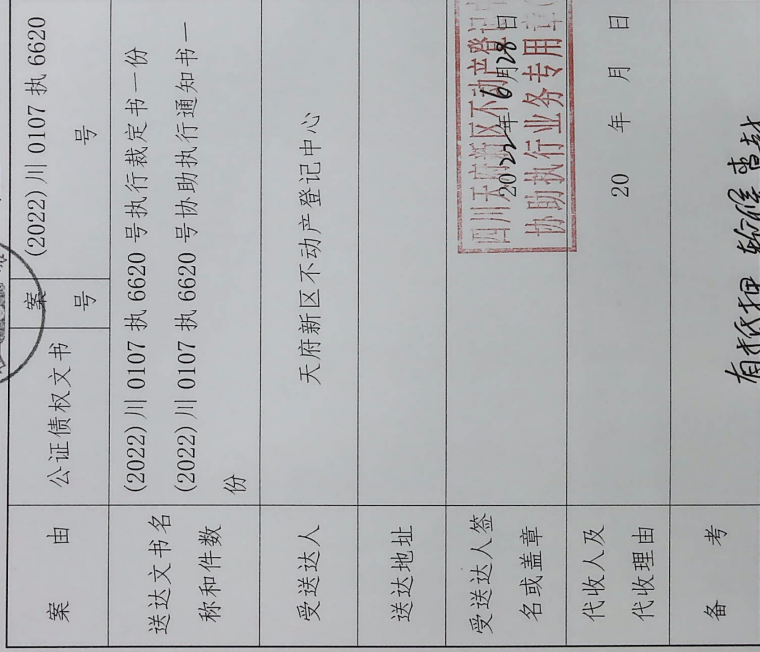 案 由
公证债权文书
案
号
(2022)川 0107 执 6620
号
送达文书名
称和件数
(2022)川 0107 执 6620 号执行裁定书一份
(2022)川 0107 执 6620 号协助执行通知书一
份
受送达人
天府新区不动产登记中心
送达地址
受送达人签
名或盖章
四川天府新区不动产登记
2022年6月28日
协助执行业务专用章
代收人及
代收理由
20 年 月 日
备 考
有抵押 轮候查封